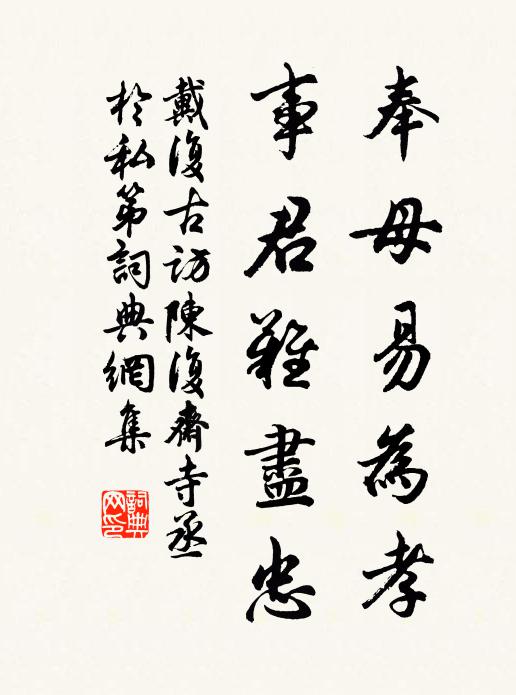 奉母易為孝
事君難盡忠
戴復古訪陳復齋寺丞
於私第詞典網集
詞典
网印